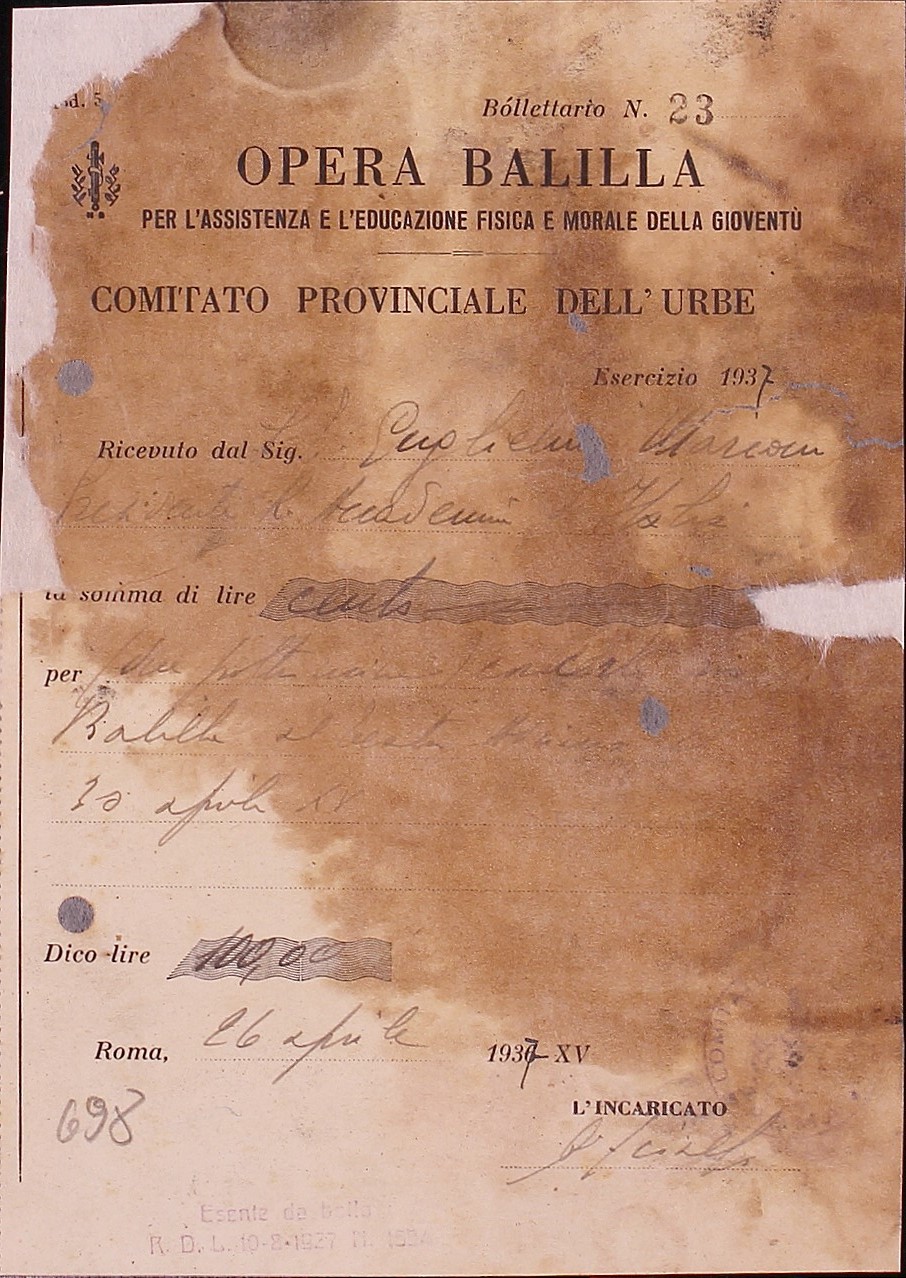 Bollettario N. 23
OPERA BALILLA
PER L'ASSISTENZA E L'EDUCAZIONE FISICA E MORALE DELLA GIOVENTÙ
COMITATO PROVINCIALE DELL'URBE
Esercizio 1937
Ricevuto dal Sig. Guglielmo Marconi
Accademia d'Italia
la somma di lire cento
per due
Balilla
20 aprile XV
Dico lire 100,00
Roma, 26 aprile 1937 XV
698
L'INCARICATO
Esente da bollo
R. D. L. 10-8-1927 N.